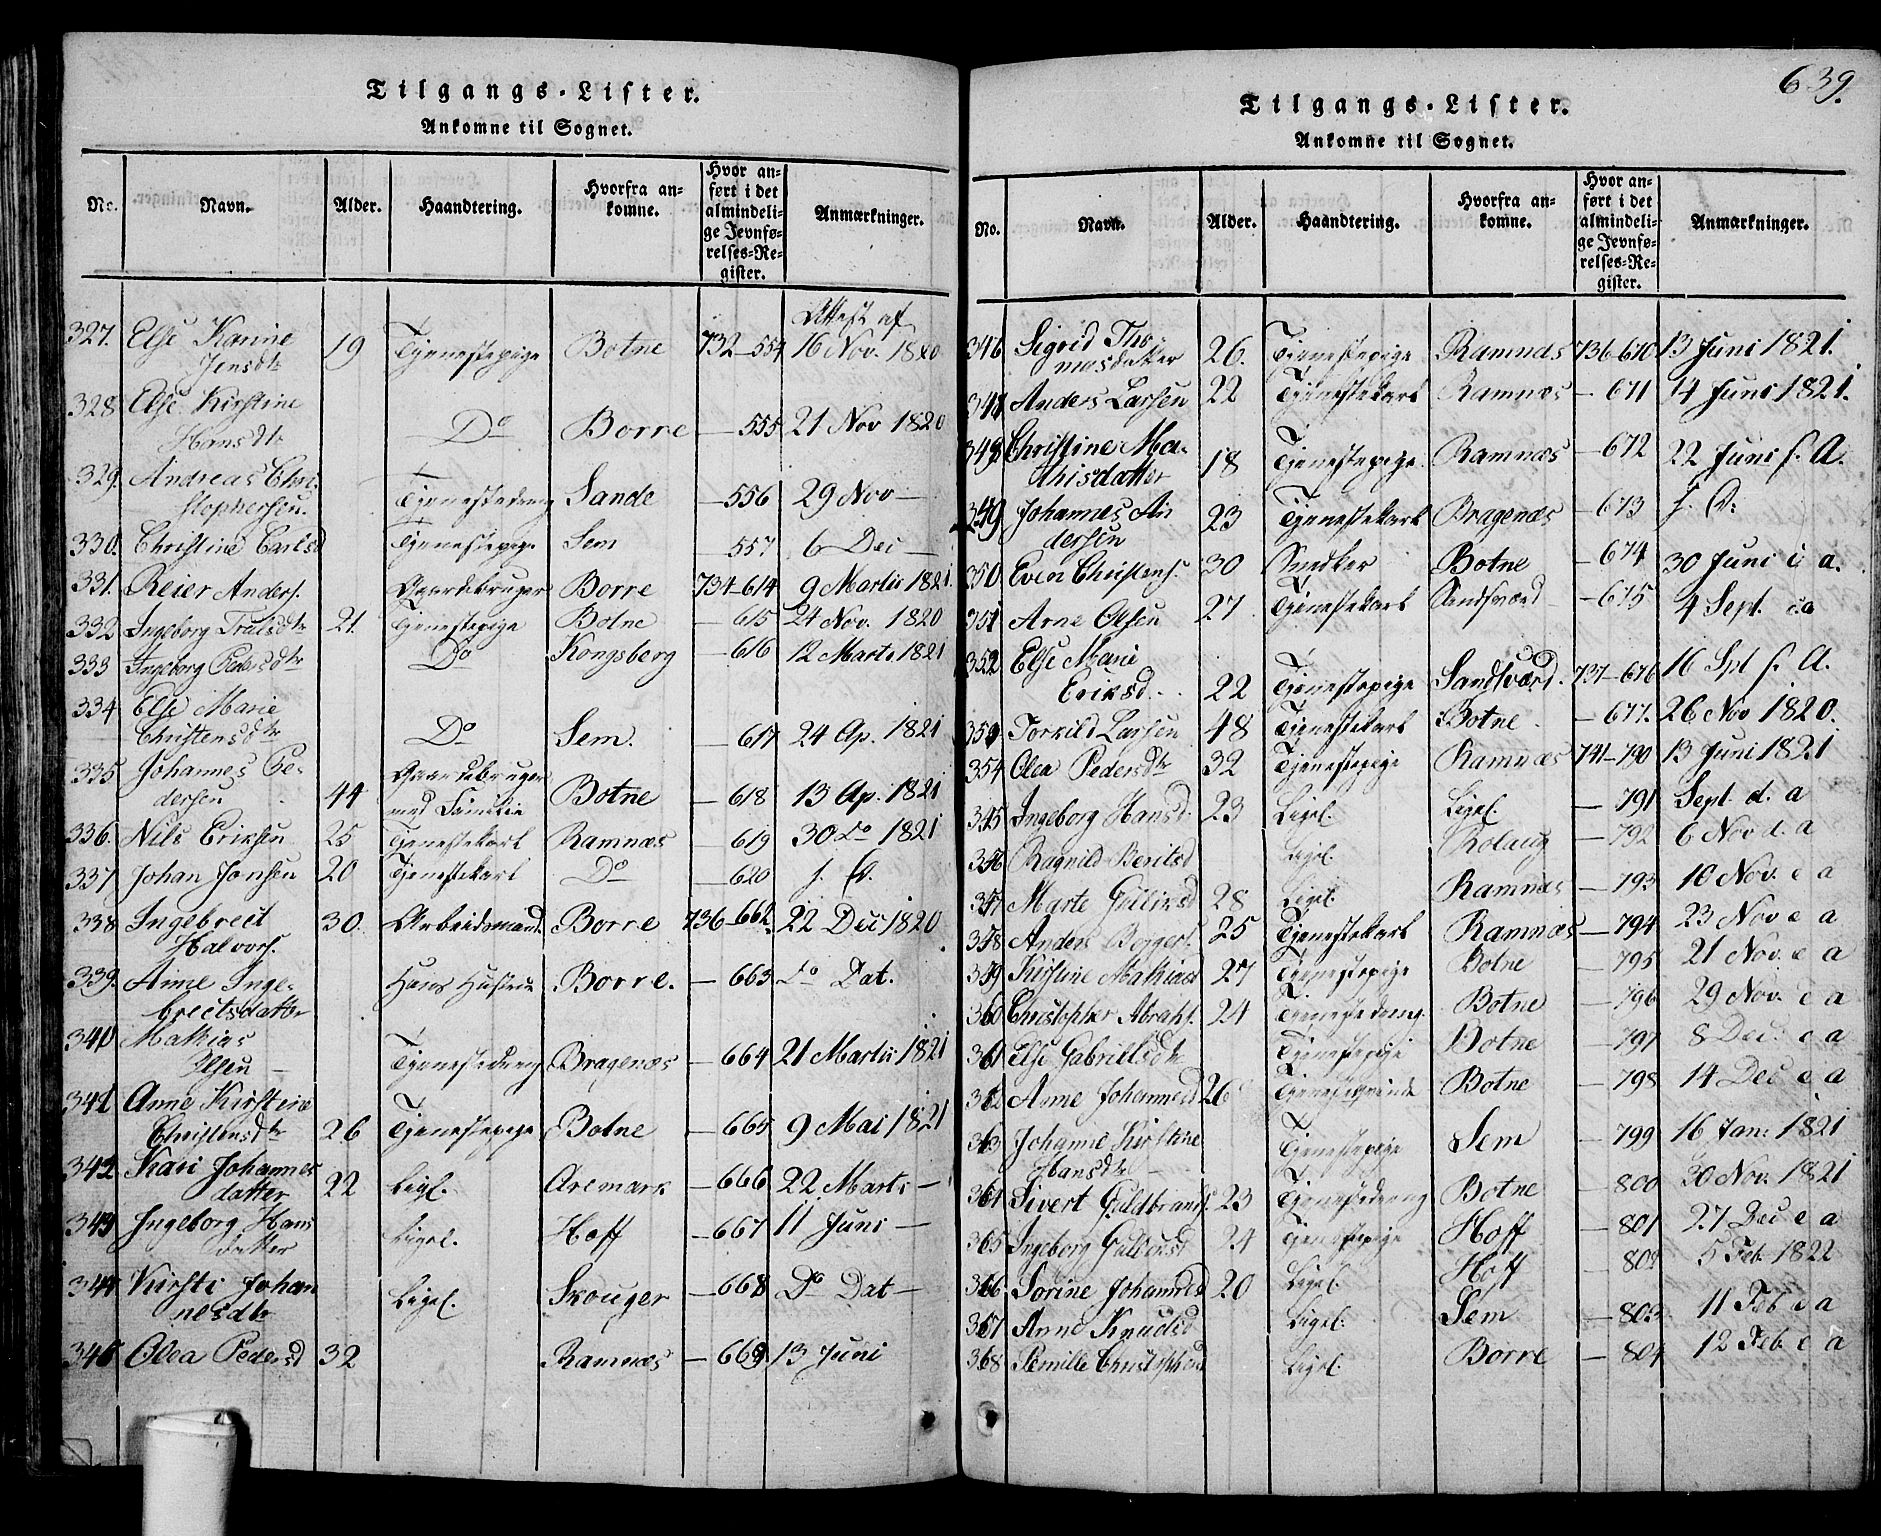 Tilgangs-Lister.
Ankomne til Sognet.
No. Navn. Alder. Haandtering. Hvorfra an-komne. Hvor an-ført i det almindeli-ge Jevnfø-relses-Re-gister. Anmærkninger.
Attest af
327. Else Karine
Jensdtr 19 Tjenestepige Botne 732-554 16 Nov. 1820
328. Else Kirstine
Hansdtr Do Borre — 555 21 Nov 1820
329. Andreas Chri-
stophersen. Tjenestedreng Sande — 556 29 Nov —
330. Christine Carlsd Tjenestepige Sem — 557 6 Dec —
331. Reier Anders. Gaardebruger Borre 734-614 9 Martii 1821
332 Ingeborg Trulsdtr 21. Tjenestepige Botne — 615 24 Nov. 1820
333 Ingeborg Pedersdtr Do Kongsberg — 616 12 Marts 1821
334 Else Marie
Christensdtr Do Sem. — 617 24 Ap. 1821
335 Johannes Pe-
dersen 44 Gaardebruger med Familie Botne — 618 13 Ap. 1821
336. Nils Eriksen 25 Tjenestekarl Ramnæs — 619 30 Do 1821
337 Johan Jonsen 20 Tjenestekarl Do — 620 s. D.
338 Ingebrect
Halvors. 30. Arbeidsmand Borre 736-662. 22 Dec 1820
339. Anne Inge-
brectsdatter Hans Hustrue Borre. — 663 do Dat.
340 Mathias
Olsen — Tjenestedreng Bragenæs — 664 21 Martii 1821
341 Anne Kirstine
Christensdtr 26 Tjenestepige Botne — 665 9 Mai 1821
342 Kari Johannes
datter 22 Ligl. Aremark — 666 22 Marts —
343 Ingeborg Hans
datter Ligel. Hoff — 667 11 Juni —
344 Kirsti Johan
nesdtr Ligel. Skouger — 668 Do Dat —
345 Olea Pedersd 32 Ramnæs — 669 13 Juni
639.
Tilgangs-Lister.
Ankomne til Sognet.
No. Navn. Alder. Haandtering. Hvorfra an-komne. Hvor an-ført i det almindeli-ge Jevnfø-relses-Re-gister. Anmærkninger.
346 Sigrid Tho-
masdatter 26. Tjenestepige Ramnæs 736-670 13 Juni 1821.
347 Anders Larsen 22 Tjenestekarl Ramnæs — 671 14 Juni 1821.
348 Christine Ma-
thisdatter 18 Tjenestepige Ramnæs — 672 22 Juni s. A.
349 Johannes An
dersen 23 Tjenestekarl Bragenæs — 673 s. D.
350. Even Christens. 30 Snedker Botne — 674 30 Juni e a.
351 Arne Olsen 27 Tjenestekarl Sandsværd — 675 4 Sept. e a
352 Else Marie
Eriksd. 22 Tjenestepige Sandsværd. 737-676 16 Spt s. A.
353 Torkild Larsen 48 Tjenestekarl Botne — 677. 26 Nov 1820.
354 Olea Pedersdtr 32 Tjenestepige Ramnæs 741-790 13 Juni 1821
345 Ingeborg Hansd. 23 Ligel. Ligel. — 791 Sept. d. a
356 Ragnild Beritsd Ligel. — 792 6 Nov d. a
357 Marte Gulliksd 28 Ligel. Ramnæs — 793 10 Nov. e a
358 Anders 25 Tjenestekarl Ramnæs — 794 23 Nov e a
359 Kirstine Mathiasd 27 Tjenestepige Botne — 795 21 Nov. e a
360 Christopher Abrahs. 24 Tjenestedreng. Botne — 796 29 Nov. e a
361 Else Gabrielsdtr Tjenestepige Botne — 797 8 Dec. e a
362 Anne Johannesd 26 Botne — 798 14 Dec e a
363 Johanne Kirstine
Hansdtr — Tjenestepige Sem — 799 16 Jan: 1821
364 Sivert Guldbrands. 23 Tjenestedreng Botne — 800 30 Nov. 1821
365 Ingeborg 24 Tjenestepige Hoff — 801 27 Dec e a
366 Sorine Johannesd 20 Ligel. Hoff — 802 5 Feb 1822
367 Anne Knudsd Ligel. Sem — 803 11 Feb e a
368 Pernille Christophersd Ligel. Borre — 804 12 Feb. e a